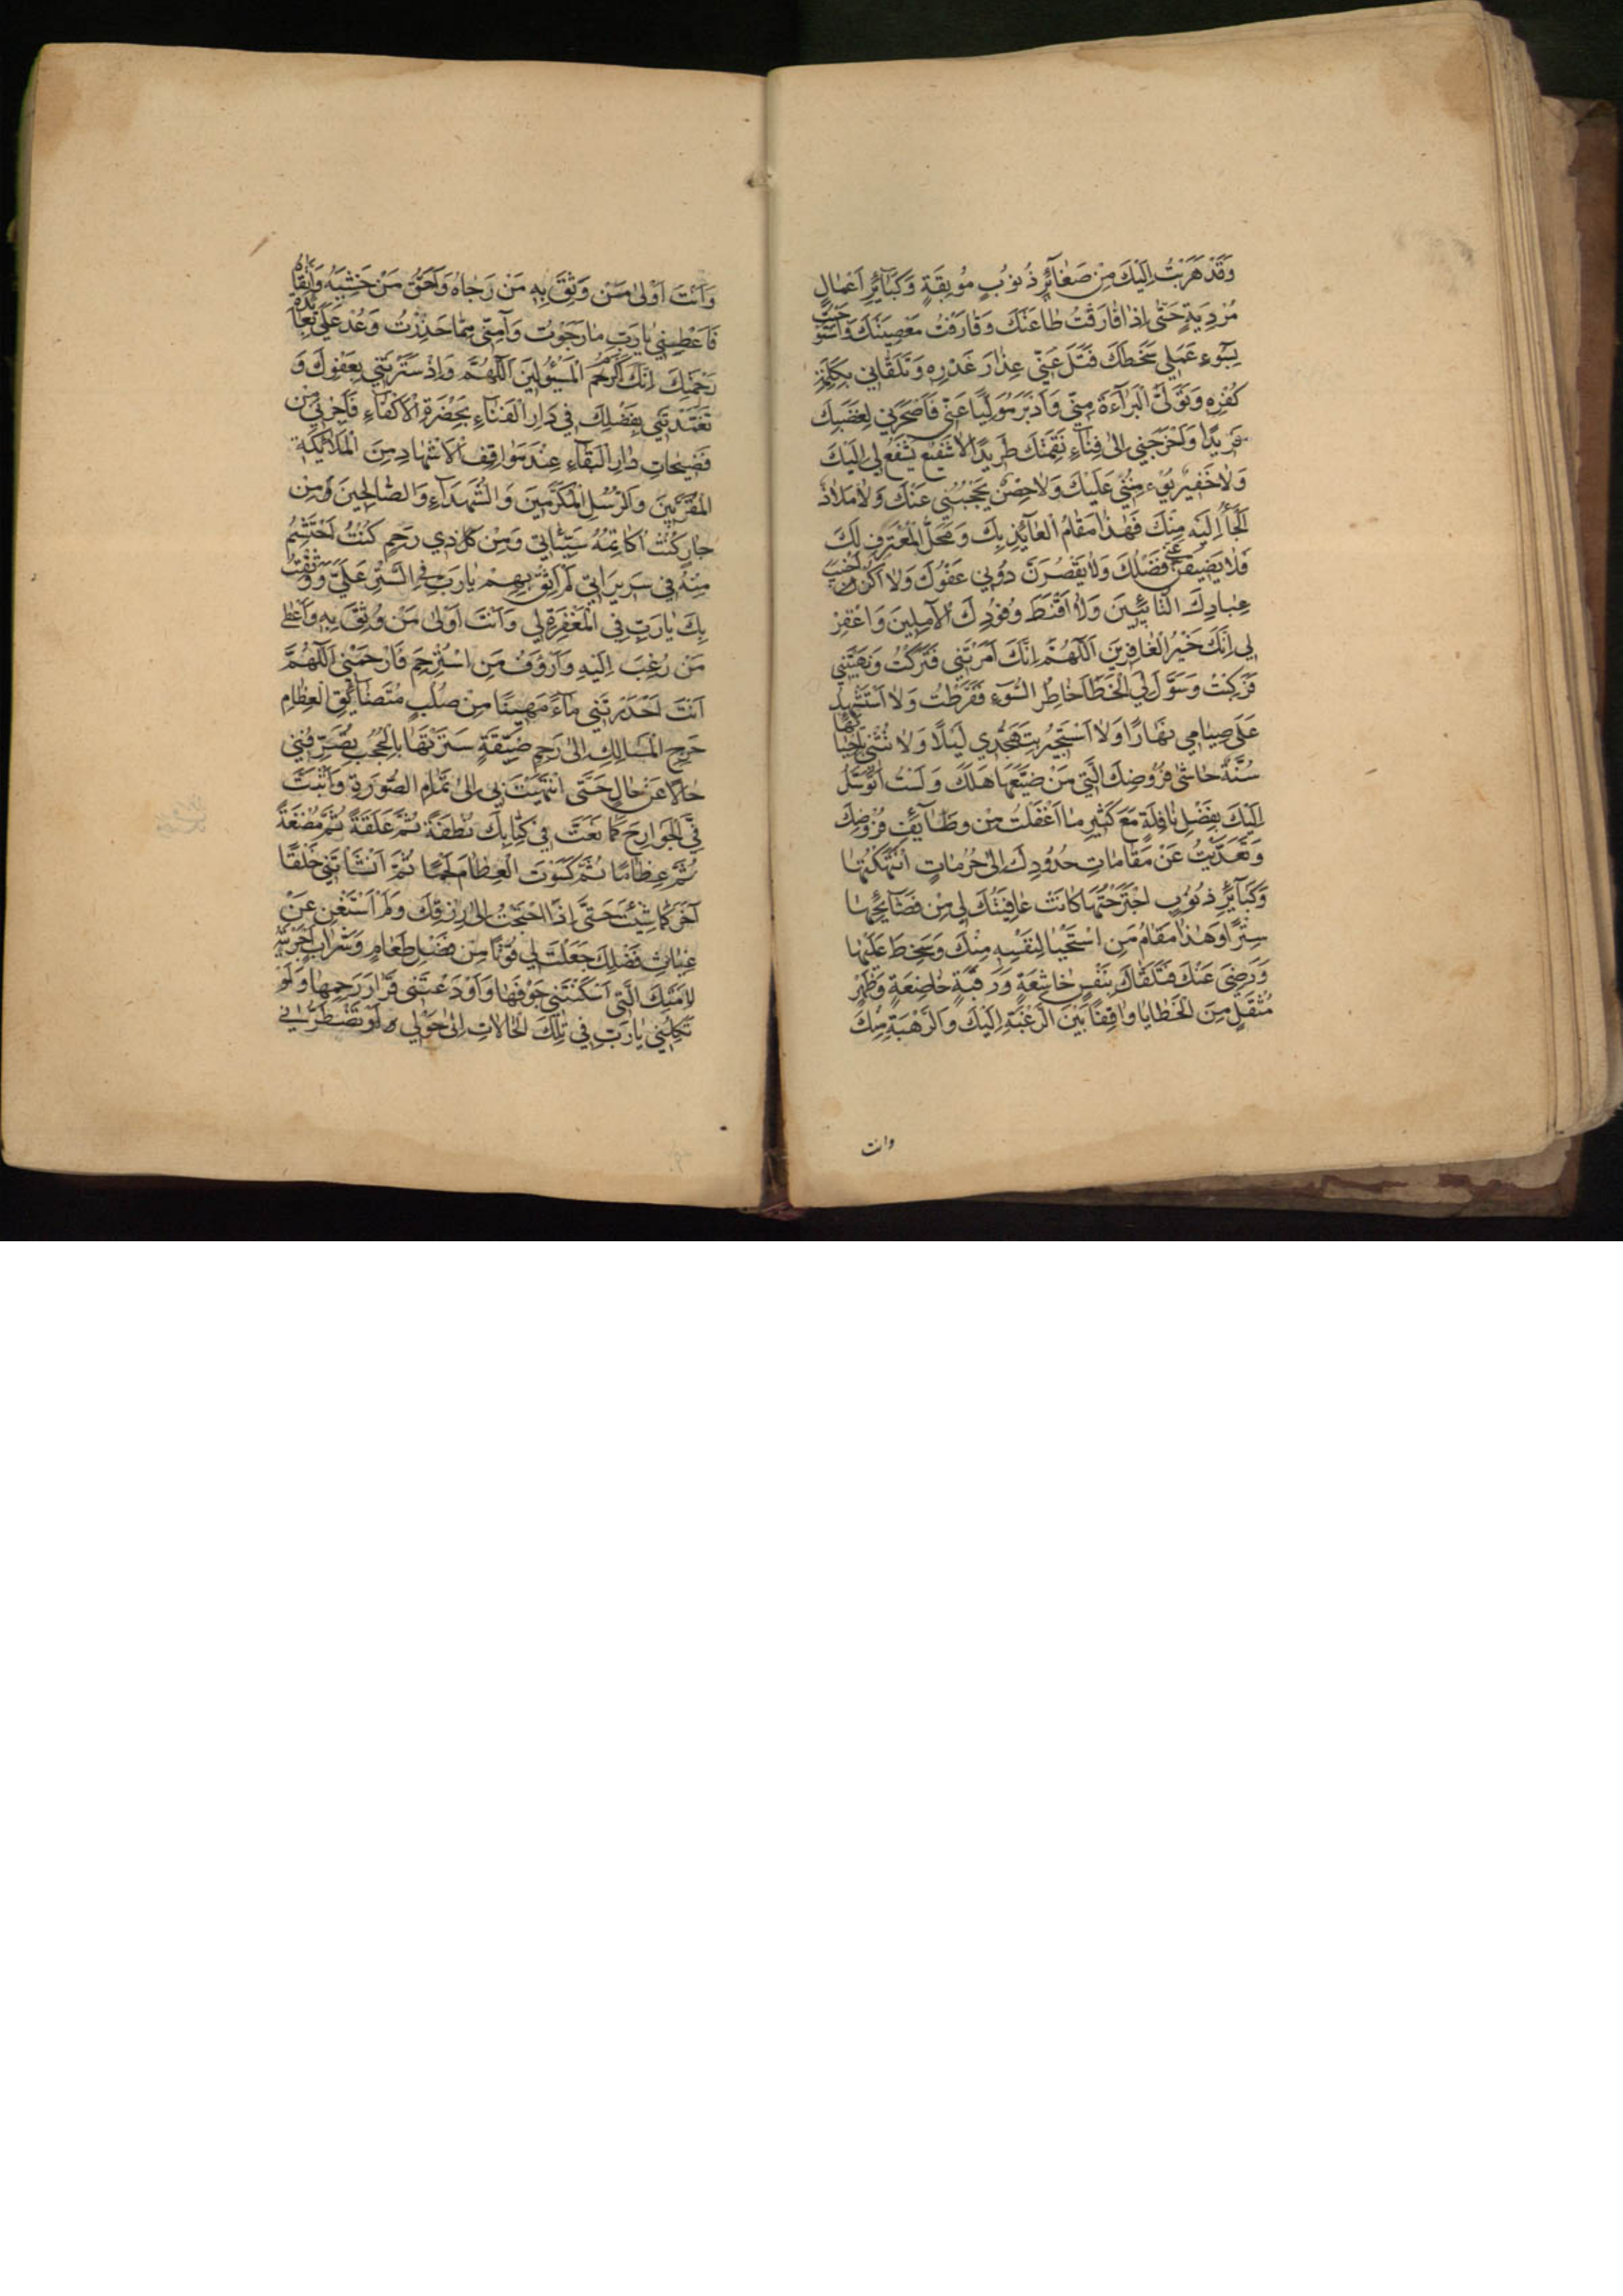 وَقَدْ هَرَبْتُ اِلَيْكَ مِنْ صَغٰآئِرِ ذُنُوبٍ مُوبِقَةٍ وَكَبٰآئِرِ اَعْمٰالٍ
مُرْدِيَةٍ حَتّٰى اِذٰا فٰارَقْتُ طٰاعَتَكَ وَقٰارَفْتُ مَعْصِيَتَكَ وَاسْتَوْجَبْتُ
بِسُوٓءِ عَمَلِي سَخَطَكَ فَتَلَ عَنِّي عِذٰارَ غَدْرِهِ وَتَلَقّٰانِي بِكَلِمَةِ
كُفْرِهِ وَتَوَلَّى الْبَرٰآءَةَ مِنِّي وَاَدْبَرَ مُوَلِّيًا عَنِّي فَاَصْحَرَنِي لِغَضَبِكَ
فَرِيدًا وَاَخْرَجَنِي اِلٰى فِنٰآءِ نَقِمَتِكَ طَرِيدًا لٰا شَفِيعٌ يَشْفَعُ لِي اِلَيْكَ
وَلٰا خَفِيرٌ يُؤْمِنُنِي عَلَيْكَ وَلٰا حِصْنٌ يَحْجُبُنِي عَنْكَ وَلٰا مَلٰاذٌ
اَلْجَأُ اِلَيْهِ مِنْكَ فَهٰذٰا مَقٰامُ الْعٰآئِذِ بِكَ وَمَحَلُّ الْمُعْتَرِفِ لَكَ
فَلٰا يَضِيقَنَّ عَنِّي فَضْلُكَ وَلٰا يَقْصُرَنَّ دُونِي عَفْوُكَ وَلٰا اَكُنْ مِنْ اَخْيَبِ
عِبٰادِكَ التّٰائِبِينَ وَلٰا اَقْنَطَ وُفُودِكَ الْاٰمِلِينَ وَاغْفِرْ
لِي اِنَّكَ خَيْرُ الْغٰافِرِينَ اَللّٰهُمَّ اِنَّكَ اَمَرْتَنِي فَتَرَكْتُ وَنَهَيْتَنِي
فَرَكِبْتُ وَسَوَّلَ لِيَ الْخَطَآءَ خٰاطِرُ السُّوٓءِ فَفَرَّطْتُ وَلٰا اَسْتَشْهِدُ
عَلٰى صِيٰامِي نَهٰارًا وَلٰا اَسْتَجِيرُ بِتَهَجُّدِي لَيْلًا وَلٰا تُثْنِي بِاِحْيٰآئِهٰا
سُنَّةٌ حٰاشٰى فُرُوضِكَ الَّتِي مَنْ ضَيَّعَهٰا هَلَكَ وَلَسْتُ اَتَوَسَّلُ
اِلَيْكَ بِفَضْلِ نٰافِلَةٍ مَعَ كَثِيرِ مٰا اَغْفَلْتُ مِنْ وَظٰآئِفِ فُرُوضِكَ
وَتَعَدَّيْتُ عَنْ مَقٰامٰاتِ حُدُودِكَ اِلٰى حُرُمٰاتٍ انْتَهَكْتُهٰا
وَكَبٰآئِرِ ذُنُوبٍ اجْتَرَحْتُهٰا كٰانَتْ عٰافِيَتُكَ لِي مِنْ فَضٰآئِحِهٰا
سِتْرًا وَهٰذٰا مَقٰامُ مَنِ اسْتَحْيٰا لِنَفْسِهِ مِنْكَ وَسَخِطَ عَلَيْهٰا
وَرَضِيَ عَنْكَ فَتَلَقّٰاكَ بِنَفْسٍ خٰاشِعَةٍ وَرَقَبَةٍ خٰاضِعَةٍ وَظَهْرٍ
مُثْقَلٍ مِنَ الْخَطٰايٰا وٰاقِفًا بَيْنَ الرَّغْبَةِ اِلَيْكَ وَالرَّهْبَةِ مِنْكَ
وانت
وَاَنْتَ اَوْلٰى مَنْ وَثِقَ بِهِ مَنْ رَجٰاهُ وَاَحَقُّ مَنْ خَشِيَهُ وَاتَّقٰاهُ
فَاَعْطِنِي يٰا رَبِّ مٰا رَجَوْتُ وَآمِنِّي مِمّٰا حَذِرْتُ وَعُدْ عَلَيَّ بِعٰآئِدَةِ
رَحْمَتِكَ اِنَّكَ اَكْرَمُ الْمَسْئُولِينَ اَللّٰهُمَّ وَاِذْ سَتَرْتَنِي بِعَفْوِكَ وَ
تَغَمَّدْتَنِي بِفَضْلِكَ فِي دٰارِ الْفَنٰآءِ بِحَضْرَةِ الْاَكْفٰآءِ فَاَجِرْنِي مِنْ
فَضِيحٰاتِ دٰارِ الْبَقٰآءِ عِنْدَ مَوٰاقِفِ الْاَشْهٰادِ مِنَ الْمَلٰآئِكَةِ
الْمُقَرَّبِينَ وَالرُّسُلِ الْمُكَرَّمِينَ وَالشُّهَدٰآءِ وَالصّٰالِحِينَ وَمِنْ
جٰارٍ كُنْتُ اُكٰاتِمُهُ سَيِّئٰاتِي وَمِنْ كُلِّ ذِي رَحِمٍ كُنْتُ اَحْتَشِمُ
مِنْهُ فِي سَرِيرَاتِي لَمْ اَثِقْ بِهِمْ يٰا رَبِّ فِي السِّتْرِ عَلَيَّ وَوَثِقْتُ
بِكَ يٰا رَبِّ فِي الْمَغْفِرَةِ لِي وَاَنْتَ اَوْلٰى مَنْ وُثِقَ بِهِ وَاَعْطٰى
مَنْ رُغِبَ اِلَيْهِ وَاَرْؤَفُ مَنِ اسْتُرْحِمَ فَارْحَمْنِي اَللّٰهُمَّ
اَنْتَ اَحْدَرْتَنِي مٰآءً مَهِينًا مِنْ صُلْبٍ مُتَضٰآئِقِ الْعِظٰامِ
حَرِجِ الْمَسٰالِكِ اِلٰى رَحِمٍ ضَيِّقَةٍ سَتَرْتَهٰا بِالْحُجُبِ تُصَرِّفُنِي
حٰالًا عَنْ حٰالٍ حَتَّى انْتَهَيْتَ بِي اِلٰى تَمٰامِ الصُّورَةِ وَاَثْبَتَّ
فِيَّ الْجَوٰارِحَ كَمٰا نَعَتَّ فِي كِتٰابِكَ نُطْفَةً ثُمَّ عَلَقَةً ثُمَّ مُضْغَةً
ثُمَّ عِظٰامًا ثُمَّ كَسَوْتَ الْعِظٰامَ لَحْمًا ثُمَّ اَنْشَأْتَنِي خَلْقًا
آخَرَ كَمٰا شِئْتَ حَتّٰى اِذَا احْتَجْتُ اِلٰى رِزْقِكَ وَلَمْ اَسْتَغْنِ عَنْ
غِيٰاثِ فَضْلِكَ جَعَلْتَ لِي قُوتًا مِنْ فَضْلِ طَعٰامٍ وَشَرٰابٍ اَجْرَيْتَهُ
لِاَمَتِكَ الَّتِي اَسْكَنْتَنِي جَوْفَهٰا وَاَوْدَعْتَنِي قَرٰارَ رَحِمِهٰا وَلَوْ
تَكِلُنِي يٰا رَبِّ فِي تِلْكَ الْحٰالٰاتِ اِلٰى حَوْلِي اَوْ تَضْطَرُّنِي